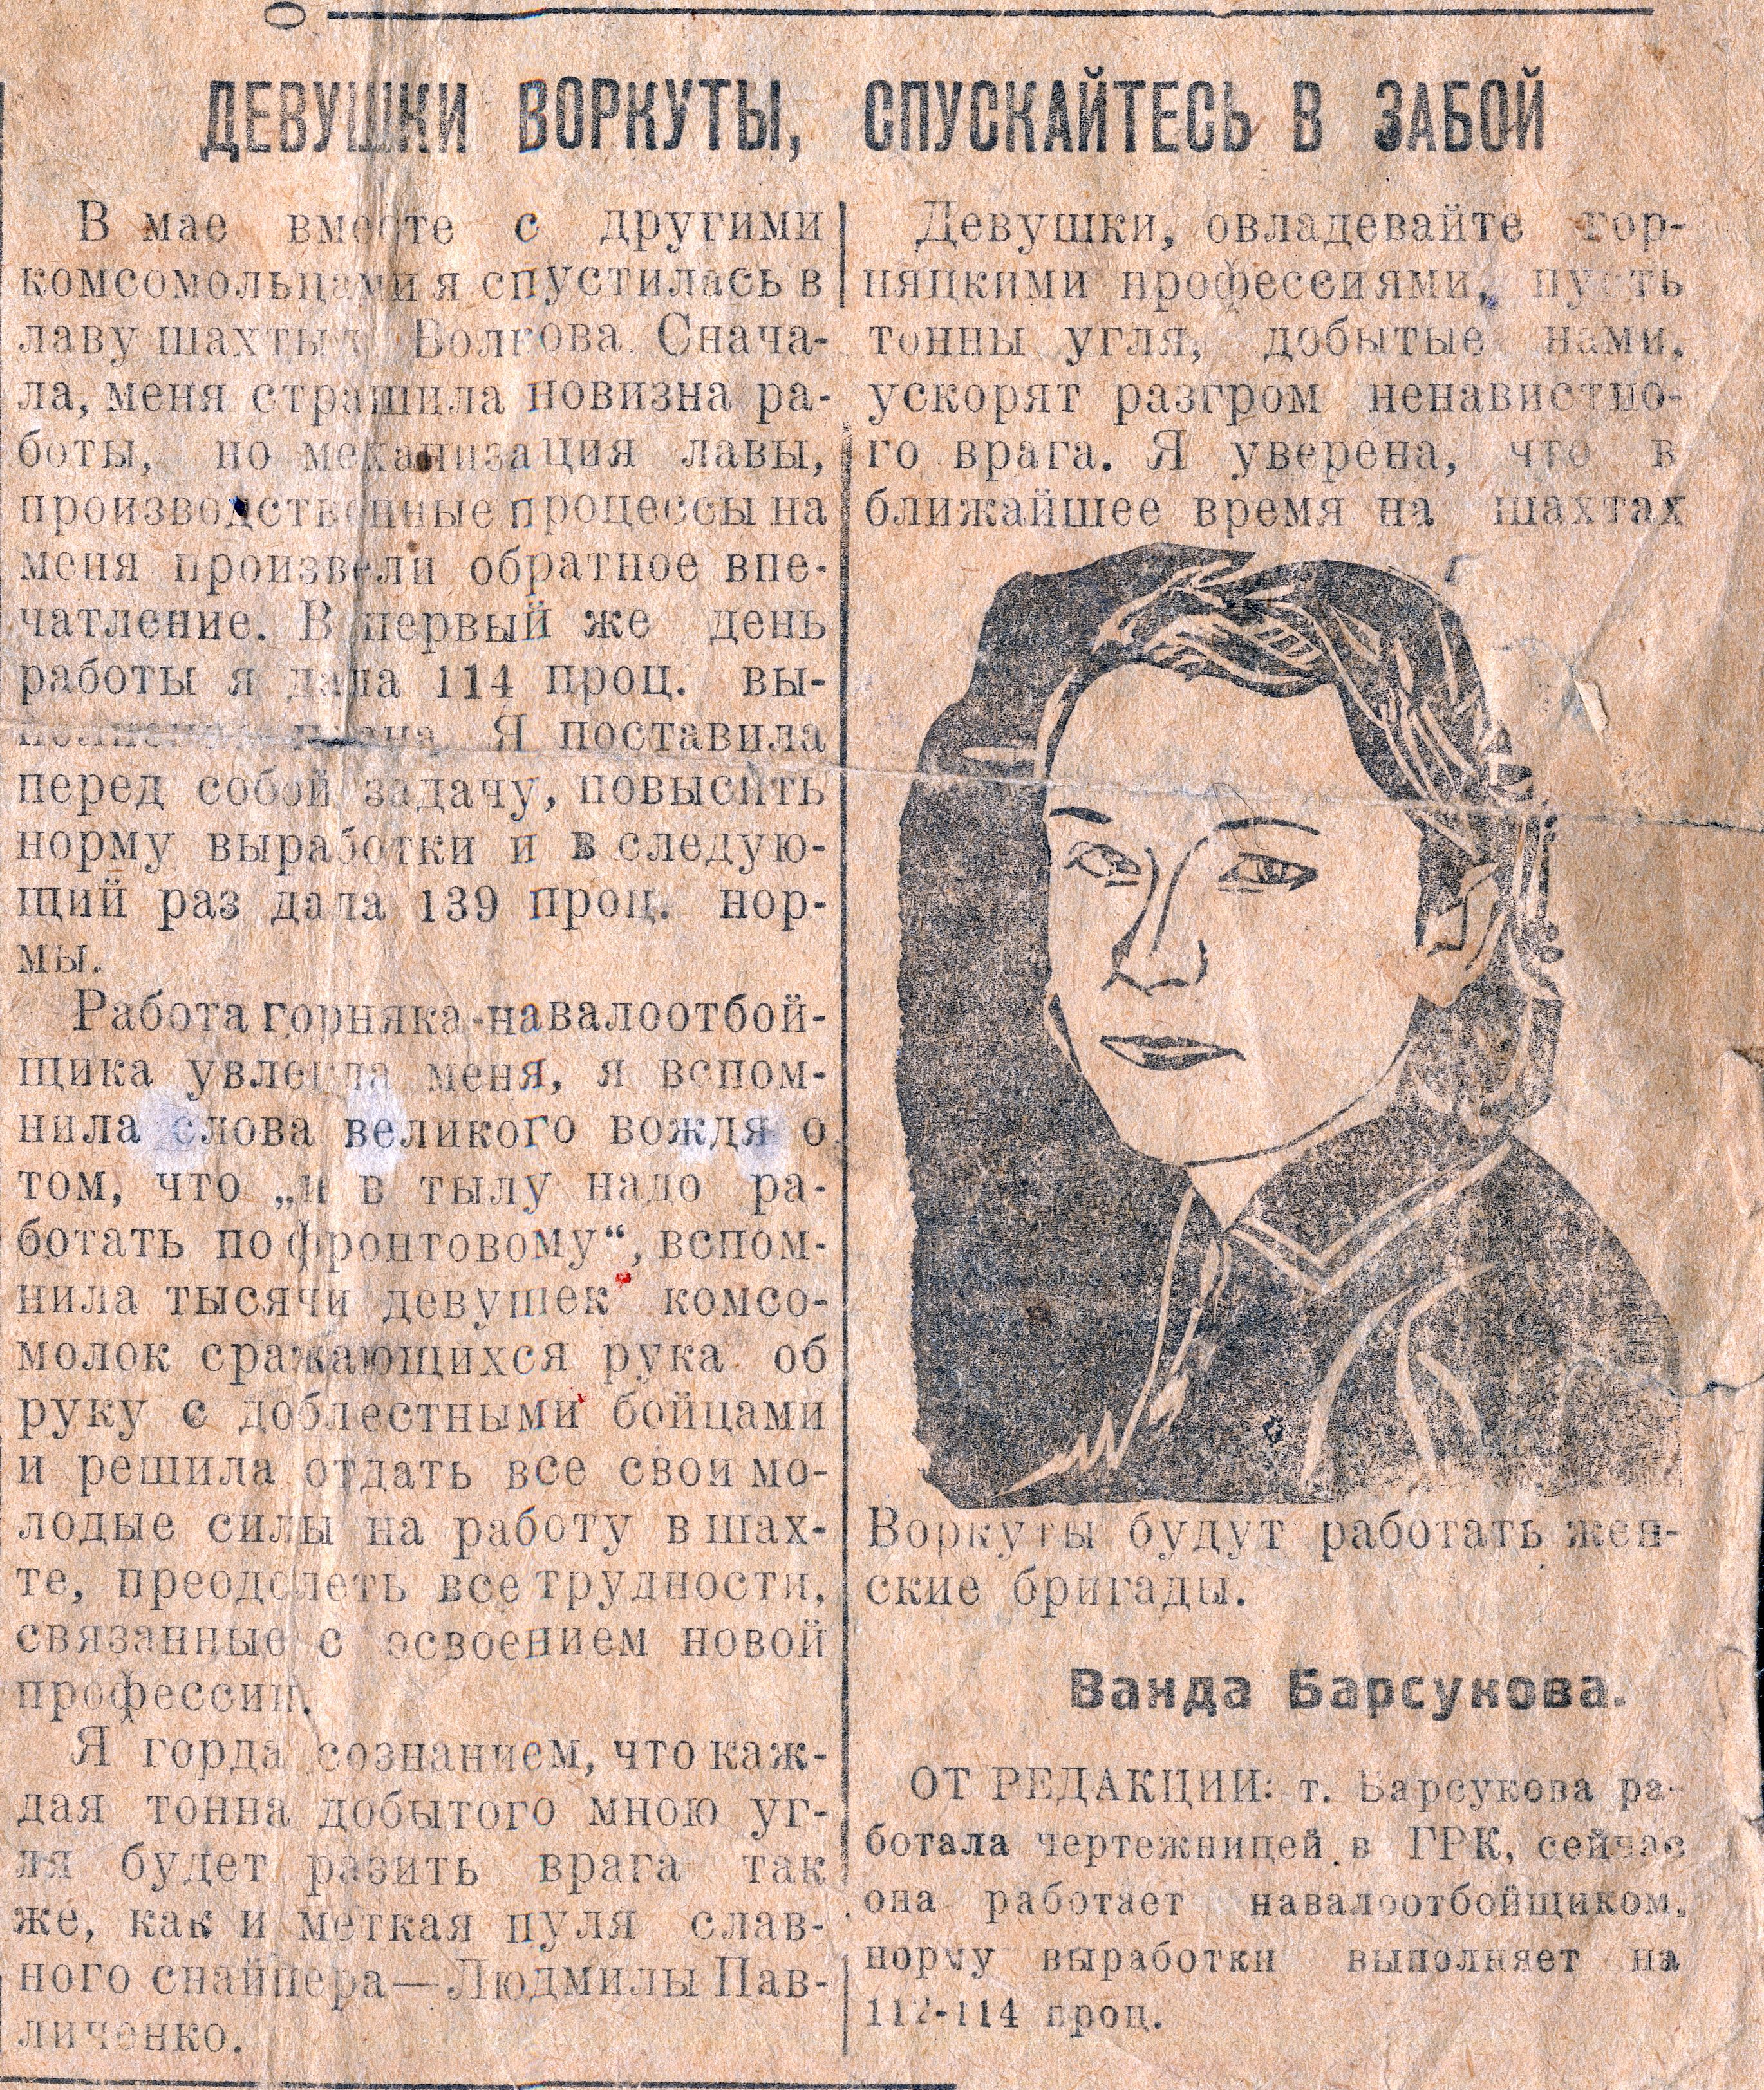 ДЕВУШКИ ВОРКУТЫ, СПУСКАЙТЕСЬ В ЗАБОЙ
В мае вместе с другими
комсомольцами я спустилась в
лаву шахты Волкова. Снача-
ла, меня страшила новизна ра-
боты, но механизация лавы,
производственные процессы на
меня произвели обратное впе-
чатление. В первый же день
работы я дала 114 проц. вы-
полнения плана. Я поставила
перед собой задачу, повысить
норму выработки и в следую-
щий раз дала 139 проц. нор-
мы.
Работа горняка-навалоотбой-
щика увлекла меня, я вспом-
нила слова великого вождя о
том, что „и в тылу надо ра-
ботать по фронтовому“, вспом-
нила тысячи девушек комсо-
молок сражающихся рука об
руку с доблестными бойцами
и решила отдать все свои мо-
лодые силы на работу в шах-
те, преодолеть все трудности,
связанные с освоением новой
профессии.
Я горда сознанием, что каж-
дая тонна добытого мною уг-
ля будет разить врага так
же, как и меткая пуля слав-
ного снайпера—Людмилы Пав-
личенко.
Девушки, овладевайте гор-
няцкими профессиями, пусть
тонны угля, добытые нами,
ускорят разгром ненавистно-
го врага. Я уверена, что в
ближайшее время на шахтах
Воркуты будут работать жен-
ские бригады.
Ванда Барсукова.
ОТ РЕДАКЦИИ: т. Барсукова ра-
ботала чертежницей в ГРК, сейчас
она работает навалоотбойщиком,
норму выработки выполняет на
112-114 проц.